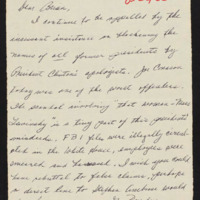 Dear Brian,
I continue to be appalled by the
incessant insistence on blackening the
names of all former presidents by
President Clinton's apologists. Joe Conason
today was one of the worst offenders.
The scandal involving "that woman - Miss
Lewinsky" is a tiny part of this president's
misdeeds. FBI files were illegally
in the White House, employees were
smeared and . I wish you would
have rebuttal to false claims, perhaps
a direct line to Stephen would